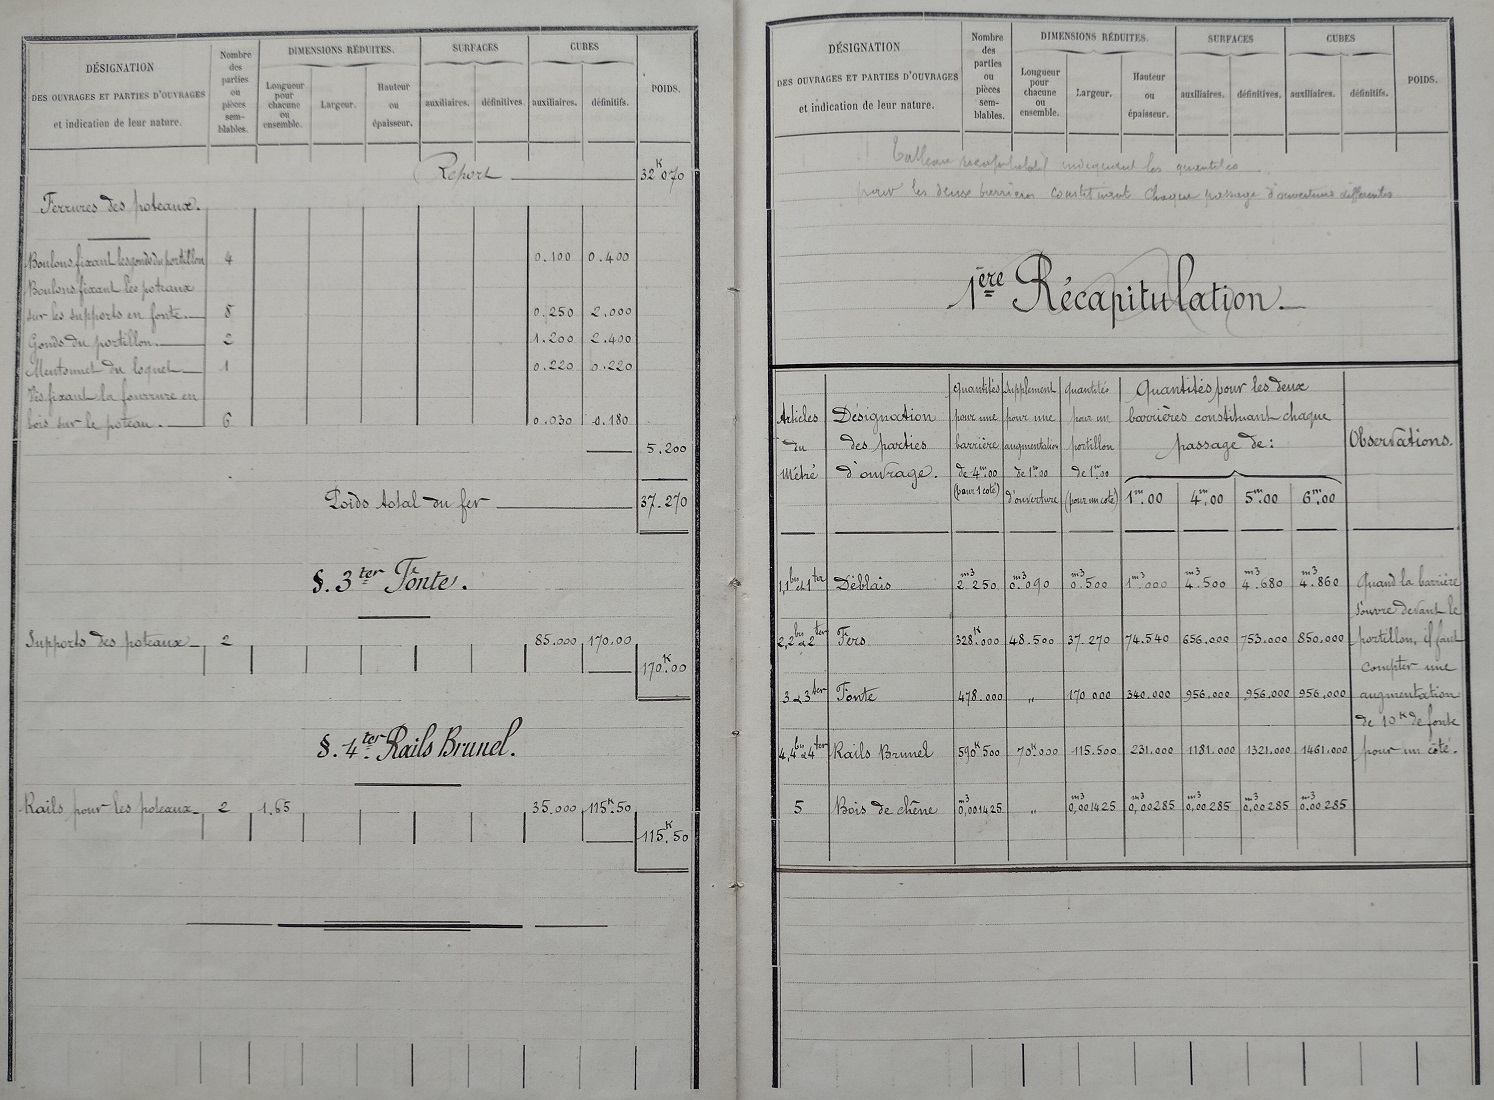 DÉSIGNATION
DES OUVRAGES ET PARTIES D'OUVRAGES
et indication de leur nature.
Nombre des parties ou pièces sem-blables.
DIMENSIONS RÉDUITES.
Longueur pour chacune ou ensemble.
Largeur.
Hauteur ou épaisseur.
SURFACES
auxiliaires. définitives.
CUBES
auxiliaires. définitifs.
POIDS.
Report 32K070
Ferrures des poteaux.
Boulons fixant les gonds du portillon 4 0.100 0.400
Boulons fixant les poteaux
sur les supports en fonte. 8 0.250 2.000
Gonds du portillon. 2 1.200 2.400
Mentonnet du loquet 1 0.220 0.220
Vis fixant la fourrure en
bois sur le poteau. 6 0.030 0.180
5.200
Poids total du fer 37.270
§. 3ter Fonte.
Supports des poteaux 2 85.000 170.00
170K.00
§. 4ter Rails Brunel.
Rails pour les poteaux 2 1.65 35.000 115K.50
115K.50
DÉSIGNATION
DES OUVRAGES ET PARTIES D'OUVRAGES
et indication de leur nature.
Nombre des parties ou pièces sem-blables.
DIMENSIONS RÉDUITES.
Longueur pour chacune ou ensemble.
Largeur.
Hauteur ou épaisseur.
SURFACES
auxiliaires. définitives.
CUBES
auxiliaires. définitifs.
POIDS.
Tableau récapitulatif indiquant les quantités
pour les deux barrières constituant chaque passage d'ouvertures différentes
1ère Récapitulation.
Articles du Métré
Désignation des parties d'ouvrage.
Quantités pour une barrière de 4m.00 (pour 1 coté)
Supplément pour une augmentation de 1m.00 d'ouverture
Quantités pour un portillon de 1m.00 (pour un coté)
Quantités pour les deux
barrières constituant chaque
passage de:
1m.00 4m.00 5m.00 6m.00
Observations.
1,1bis et 1ter Déblais 2m3.250 0m3.090 0m3.500 1m3.000 4m3.500 4m3.680 4m3.860
2,2bis à 2ter Fers 328K.000 48.500 37.270 74.540 656.000 753.000 850.000
3 à 3ter Fonte 478.000 " 170.000 340.000 956.000 956.000 956.000
4,4bis à 4ter Rails Brunel 590K500 70K.000 115.500 231.000 1181.000 1321.000 1461.000
5 Bois de chêne 0m3,001425 " 0m3,001425 0m3,00285 0m3,00285 0m3,00285 0m3.00285
Quand la barrière
s'ouvre devant le
portillon, il faut
compter une
augmentation
de 10K de fonte
pour un côté.